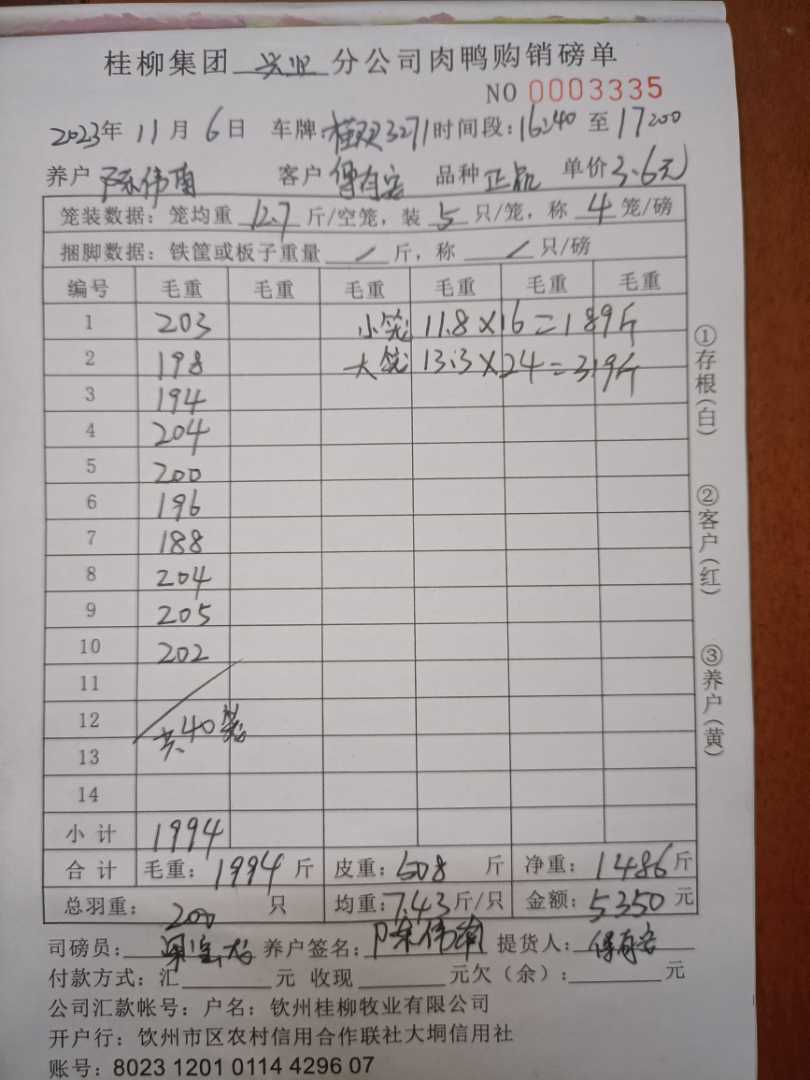 桂柳集团 兴业 分公司肉鸭购销磅单
NO 0003335
2023年 11月 6日 车牌:桂双3271 时间段:16:40 至 17:00
养户 陈伟南 客户 傅有安 品种 正 单价 3.6元
笼装数据: 笼均重 12.7 斤/空笼, 装 5 只/笼, 称 4 笼/磅
捆脚数据: 铁筐或板子重量 / 斤, 称 / 只/磅
编号 毛重 毛重 毛重 毛重 毛重 毛重
1 203 小笼 11.8×16=189斤
2 198 大笼 13.3×24=319斤
3 194
4 204
5 200
6 196
7 188
8 204
9 205
10 202
11
12 共40笼
13
14
小计 1994
合计 毛重: 1994 斤 皮重: 508 斤 净重: 1486 斤
总羽重: 200 只 均重: 7.43 斤/只 金额: 5350 元
司磅员: 养户签名: 陈伟南 提货人: 傅有安
付款方式: 汇 元 收现 元欠(余): 元
公司汇款帐号: 户名: 钦州桂柳牧业有限公司
开户行: 钦州市区农村信用合作联社大垌信用社
账号: 8023 1201 0114 4296 07
①存根(白)
②客户(红)
③养户(黄)